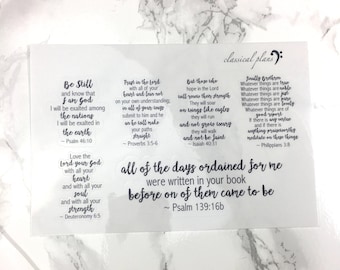 classical plans
Be Still
and know that
I am God
I will be exalted among
the nations
I will be exalted in
the earth
~ Psalm 46:10
Trust in the Lord
with all of your
heart and lean not
on your own understanding;
in all of your ways
submit to him and he
he will make
your paths
straight
~ Proverbs 3:5-6
But those who
hope in the Lord
will renew their strength
They will soar
on wings like eagles
they will run
and not grow weary
they will walk
and not be faint
~ Isaiah 40:31
Finally Brothers
Whatever things are true
Whatever things are noble
Whatever things are just
Whatever things are pure
Whatever things are lovely
Whatever things are of
good report
If there is any virtue
and if there is
anything praiseworthy
meditate on these things
~ Philippians 4:8
Love the
Lord your God
with all your
heart
and with all
your soul
and with all your
strength
~ Deuteronomy 6:5
all of the days ordained for me
were written in your book
before on of them came to be
~ Psalm 139:16b